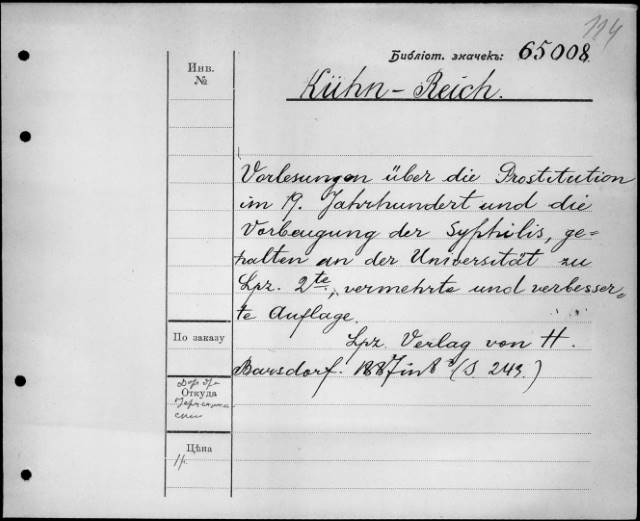 114
Библіот. значекъ: 65008
Инв.
№
Kühn – Reich.
Vorlesungen über die Prostitution
im 19. Jahrhundert und die
Vorbeugung der Syphilis, ge=
halten an der Universität zu
Lpz. 2te, vermehrte und verbesser=
te Auflage.
Lpz. Verlag von H.
Barsdorf. 1887 in 8° (S 243.)
По заказу
Откуда
Цѣна
1р